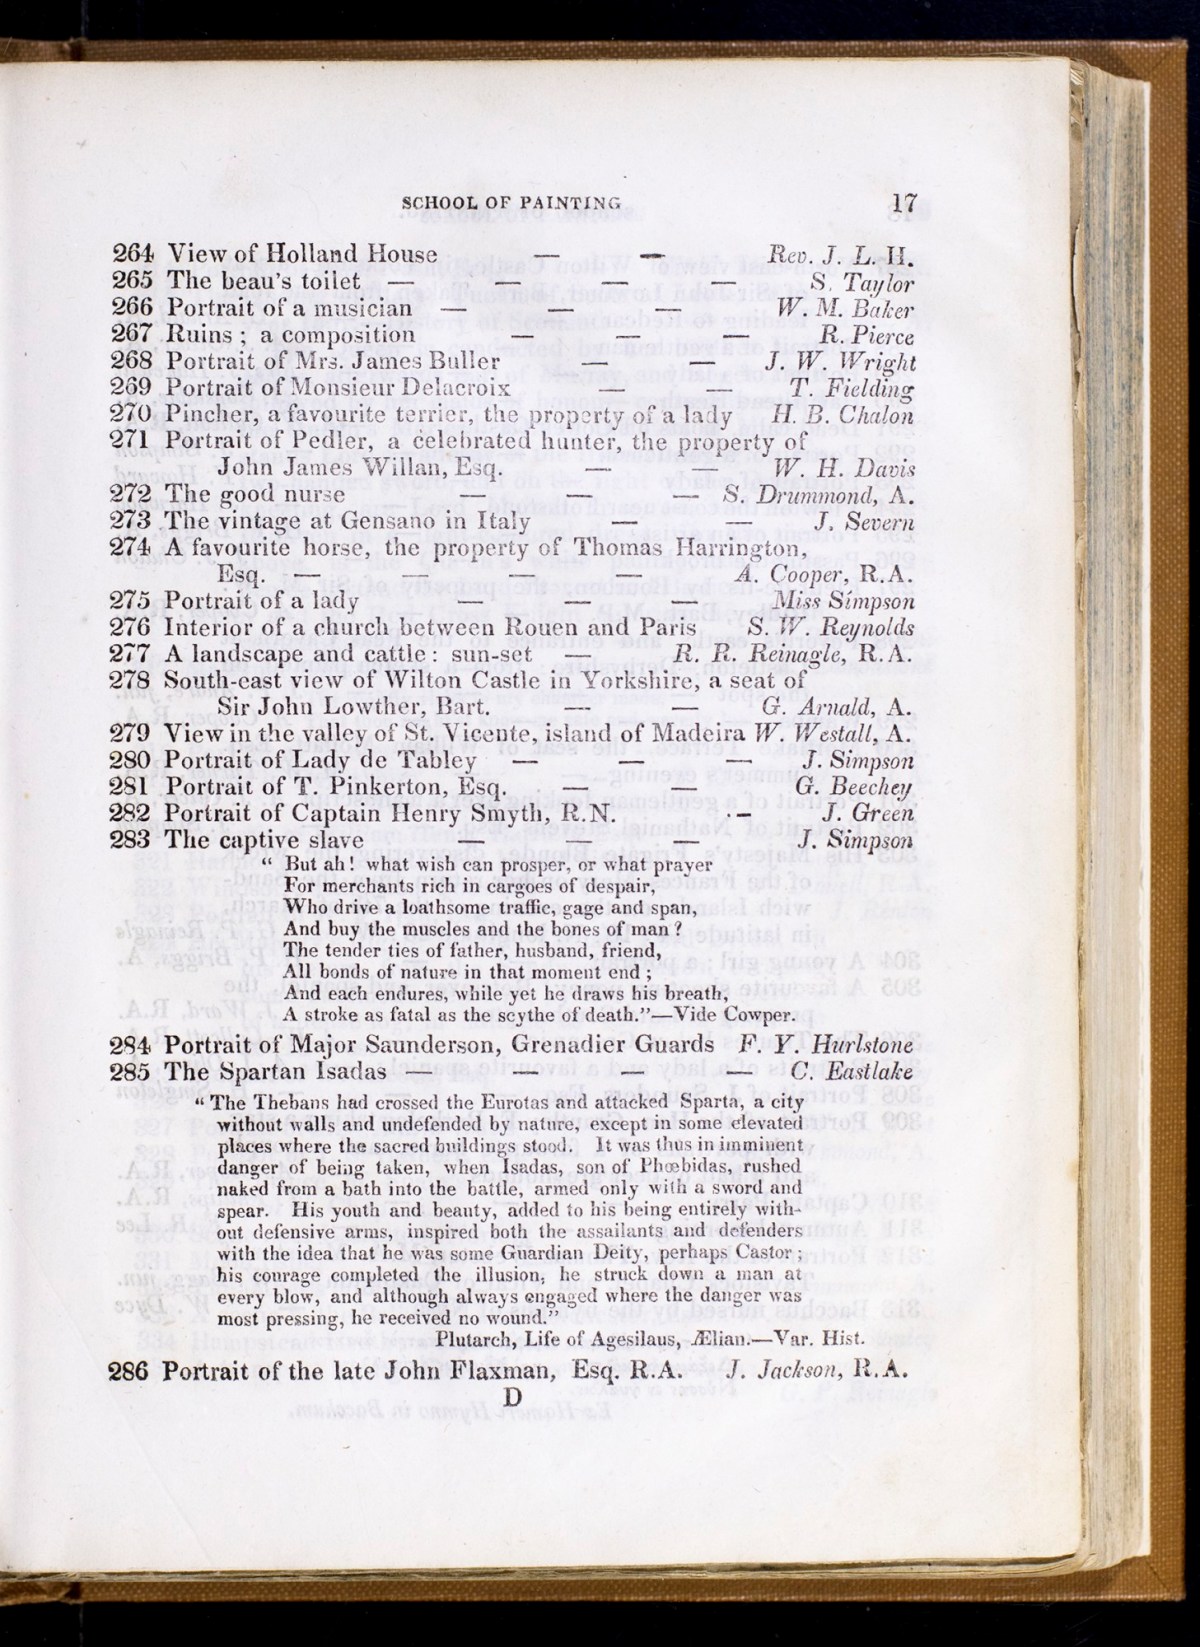 SCHOOL OF PAINTING 17
264 View of Holland House — — Rev. J. L. H.
265 The beau's toilet — — — — S. Taylor
266 Portrait of a musician — — — W. M. Baker
267 Ruins ; a composition — — — R. Pierce
268 Portrait of Mrs. James Buller — — J. W. Wright
269 Portrait of Monsieur Delacroix — — T. Fielding
270 Pincher, a favourite terrier, the property of a lady H. B. Chalon
271 Portrait of Pedler, a celebrated hunter, the property of
John James Willan, Esq. — — W. H. Davis
272 The good nurse — — — S. Drummond, A.
273 The vintage at Gensano in Italy — — J. Severn
274 A favourite horse, the property of Thomas Harrington,
Esq. — — — — A. Cooper, R.A.
275 Portrait of a lady — — — Miss Simpson
276 Interior of a church between Rouen and Paris S. W. Reynolds
277 A landscape and cattle : sun-set — R. R. Reinagle, R.A.
278 South-east view of Wilton Castle in Yorkshire, a seat of
Sir John Lowther, Bart. — — G. Arnald, A.
279 View in the valley of St. Vicente, island of Madeira W. Westall, A.
280 Portrait of Lady de Tabley — — — J. Simpson
281 Portrait of T. Pinkerton, Esq. — — G. Beechey
282 Portrait of Captain Henry Smyth, R.N. - – J. Green
283 The captive slave — — — J. Simpson
“ But ah ! what wish can prosper, or what prayer
For merchants rich in cargoes of despair,
Who drive a loathsome traffic, gage and span,
And buy the muscles and the bones of man ?
The tender ties of father, husband, friend,
All bonds of nature in that moment end ;
And each endures, while yet he draws his breath,
A stroke as fatal as the scythe of death.”—Vide Cowper.
284 Portrait of Major Saunderson, Grenadier Guards F. Y. Hurlstone
285 The Spartan Isadas — — — — C. Eastlake
“ The Thebans had crossed the Eurotas and attacked Sparta, a city
without walls and undefended by nature, except in some elevated
places where the sacred buildings stood. It was thus in imminent
danger of being taken, when Isadas, son of Phœbidas, rushed
naked from a bath into the battle, armed only with a sword and
spear. His youth and beauty, added to his being entirely with-
out defensive arms, inspired both the assailants and defenders
with the idea that he was some Guardian Deity, perhaps Castor ;
his courage completed the illusion, he struck down a man at
every blow, and although always engaged where the danger was
most pressing, he received no wound.”
Plutarch, Life of Agesilaus, Ælian.—Var. Hist.
286 Portrait of the late John Flaxman, Esq. R.A. J. Jackson, R.A.
D